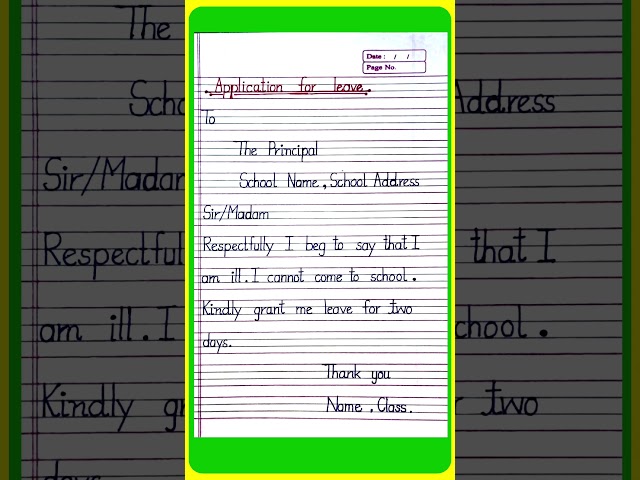 Date : / /
Page No.
Application for leave.
To
The Principal
School Name, School Address
Sir/Madam
Respectfully I beg to say that I
am ill. I cannot come to school.
Kindly grant me leave for two
days.
Thank you
Name, Class.